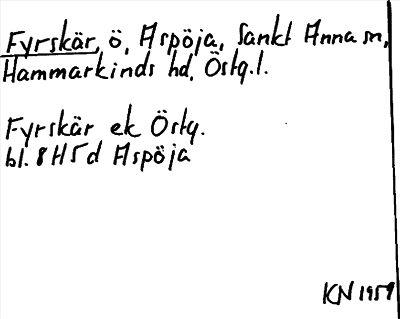 Fyrskär, ö, Aspöja, Sankt Anna sn,
Hammarkinds hd, Östg.l.
Fyrskär ek Östg.
bl. 8H5d Aspöja
KN 1959